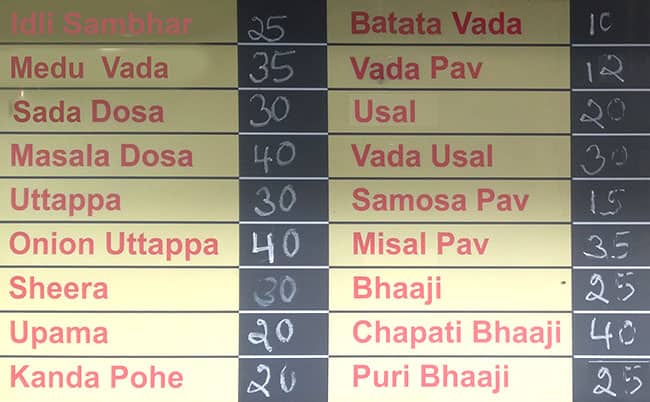 Idli Sambhar 25 Batata Vada 10
Medu Vada 35 Vada Pav 12
Sada Dosa 30 Usal 20
Masala Dosa 40 Vada Usal 30
Uttappa 30 Samosa Pav 15
Onion Uttappa 40 Misal Pav 35
Sheera 30 Bhaaji 25
Upama 20 Chapati Bhaaji 40
Kanda Pohe 20 Puri Bhaaji 25